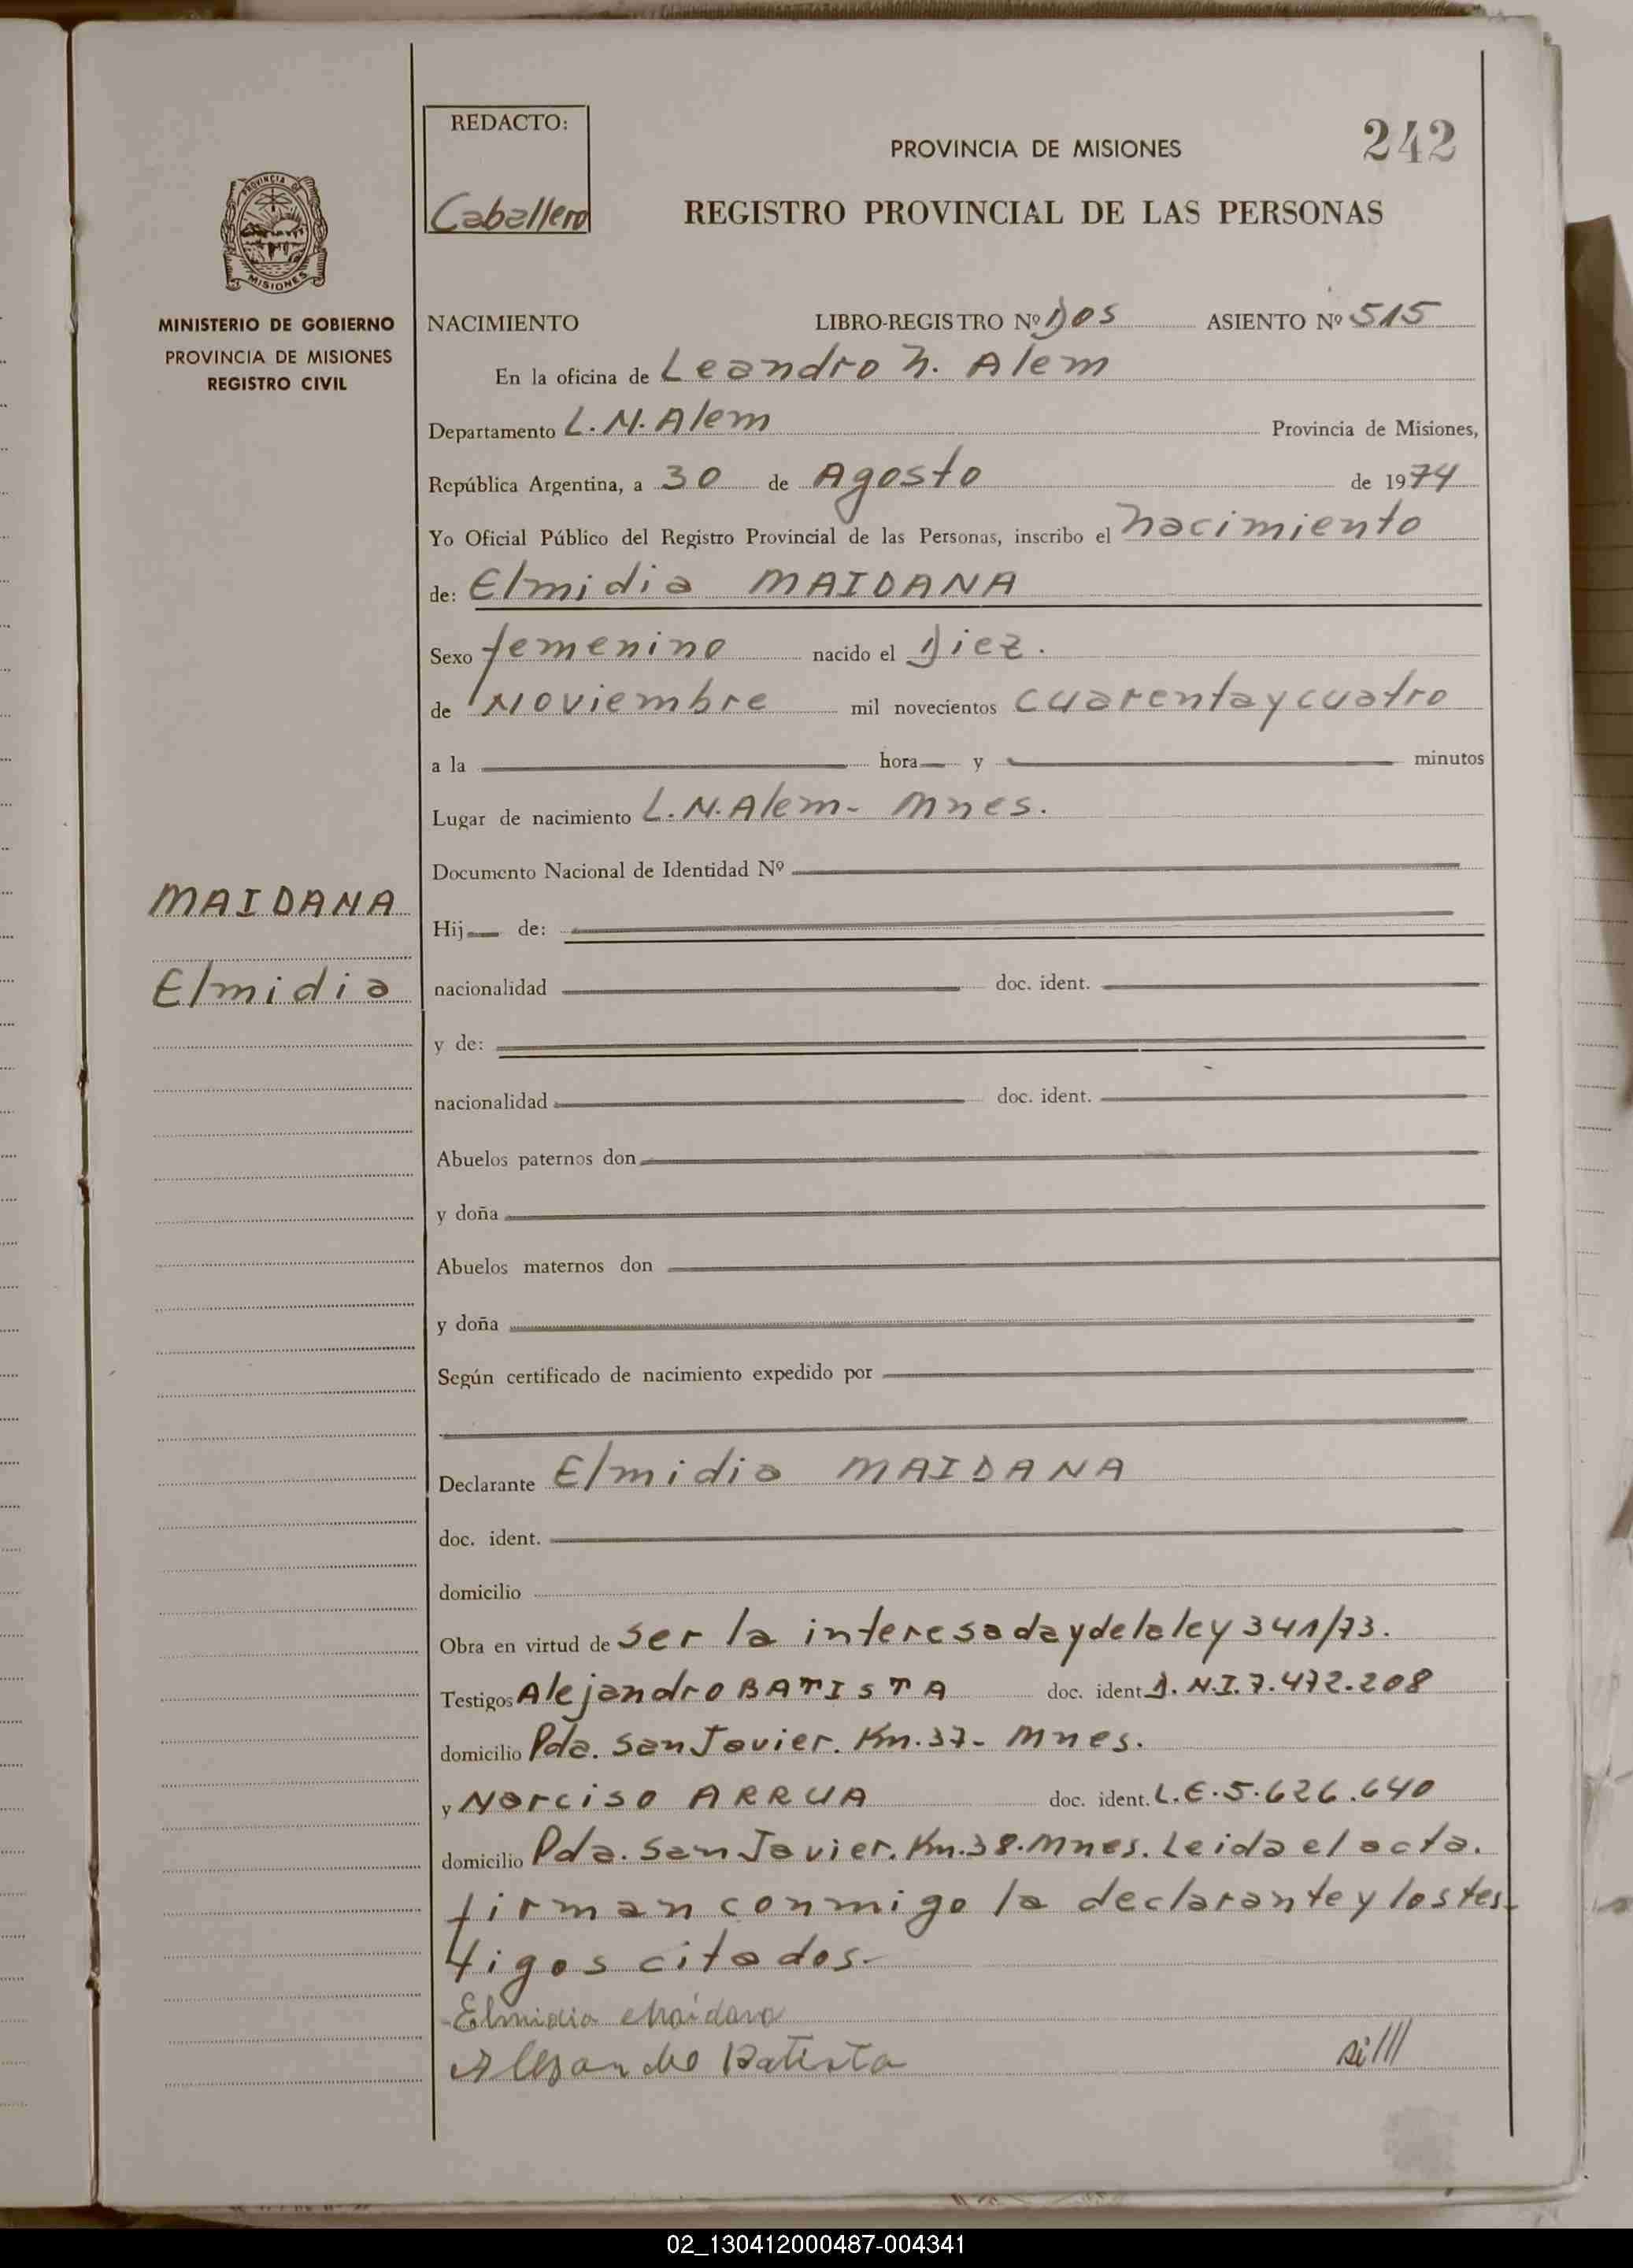 REDACTO:
Caballero
PROVINCIA DE MISIONES
242
REGISTRO PROVINCIAL DE LAS PERSONAS
PROVINCIA DE
MISIONES
MINISTERIO DE GOBIERNO
PROVINCIA DE MISIONES
REGISTRO CIVIL
NACIMIENTO LIBRO-REGISTRO Nº Dos ASIENTO Nº 515
En la oficina de Leandro N. Alem
Departamento L. N. Alem Provincia de Misiones,
República Argentina, a 30 de Agosto de 1974
Yo Oficial Público del Registro Provincial de las Personas, inscribo el nacimiento
de: Elmidia MAIDANA
Sexo femenino nacido el Diez.
de Noviembre mil novecientos cuarenta y cuatro
a la hora y minutos
Lugar de nacimiento L. N. Alem - Mnes.
Documento Nacional de Identidad Nº
MAIDANA
Elmidia
Hij de:
nacionalidad doc. ident.
y de:
nacionalidad doc. ident.
Abuelos paternos don
y doña
Abuelos maternos don
y doña
Según certificado de nacimiento expedido por
Declarante Elmidia MAIDANA
doc. ident.
domicilio
Obra en virtud de ser la interesada y de la ley 341/73.
Testigos Alejandro BATISTA doc. ident. D.N.I. 7.472.208
domicilio Pda. San Javier. Km. 37 - Mnes.
y Narciso ARRUA doc. ident. L.E. 5.626.640
domicilio Pda. San Javier. Km. 38. Mnes. Leida el acta.
firman conmigo la declarante y los tes-
tigos citados.-
Elmidia Maidana
Alejandro Batista
02_130412000487-004341